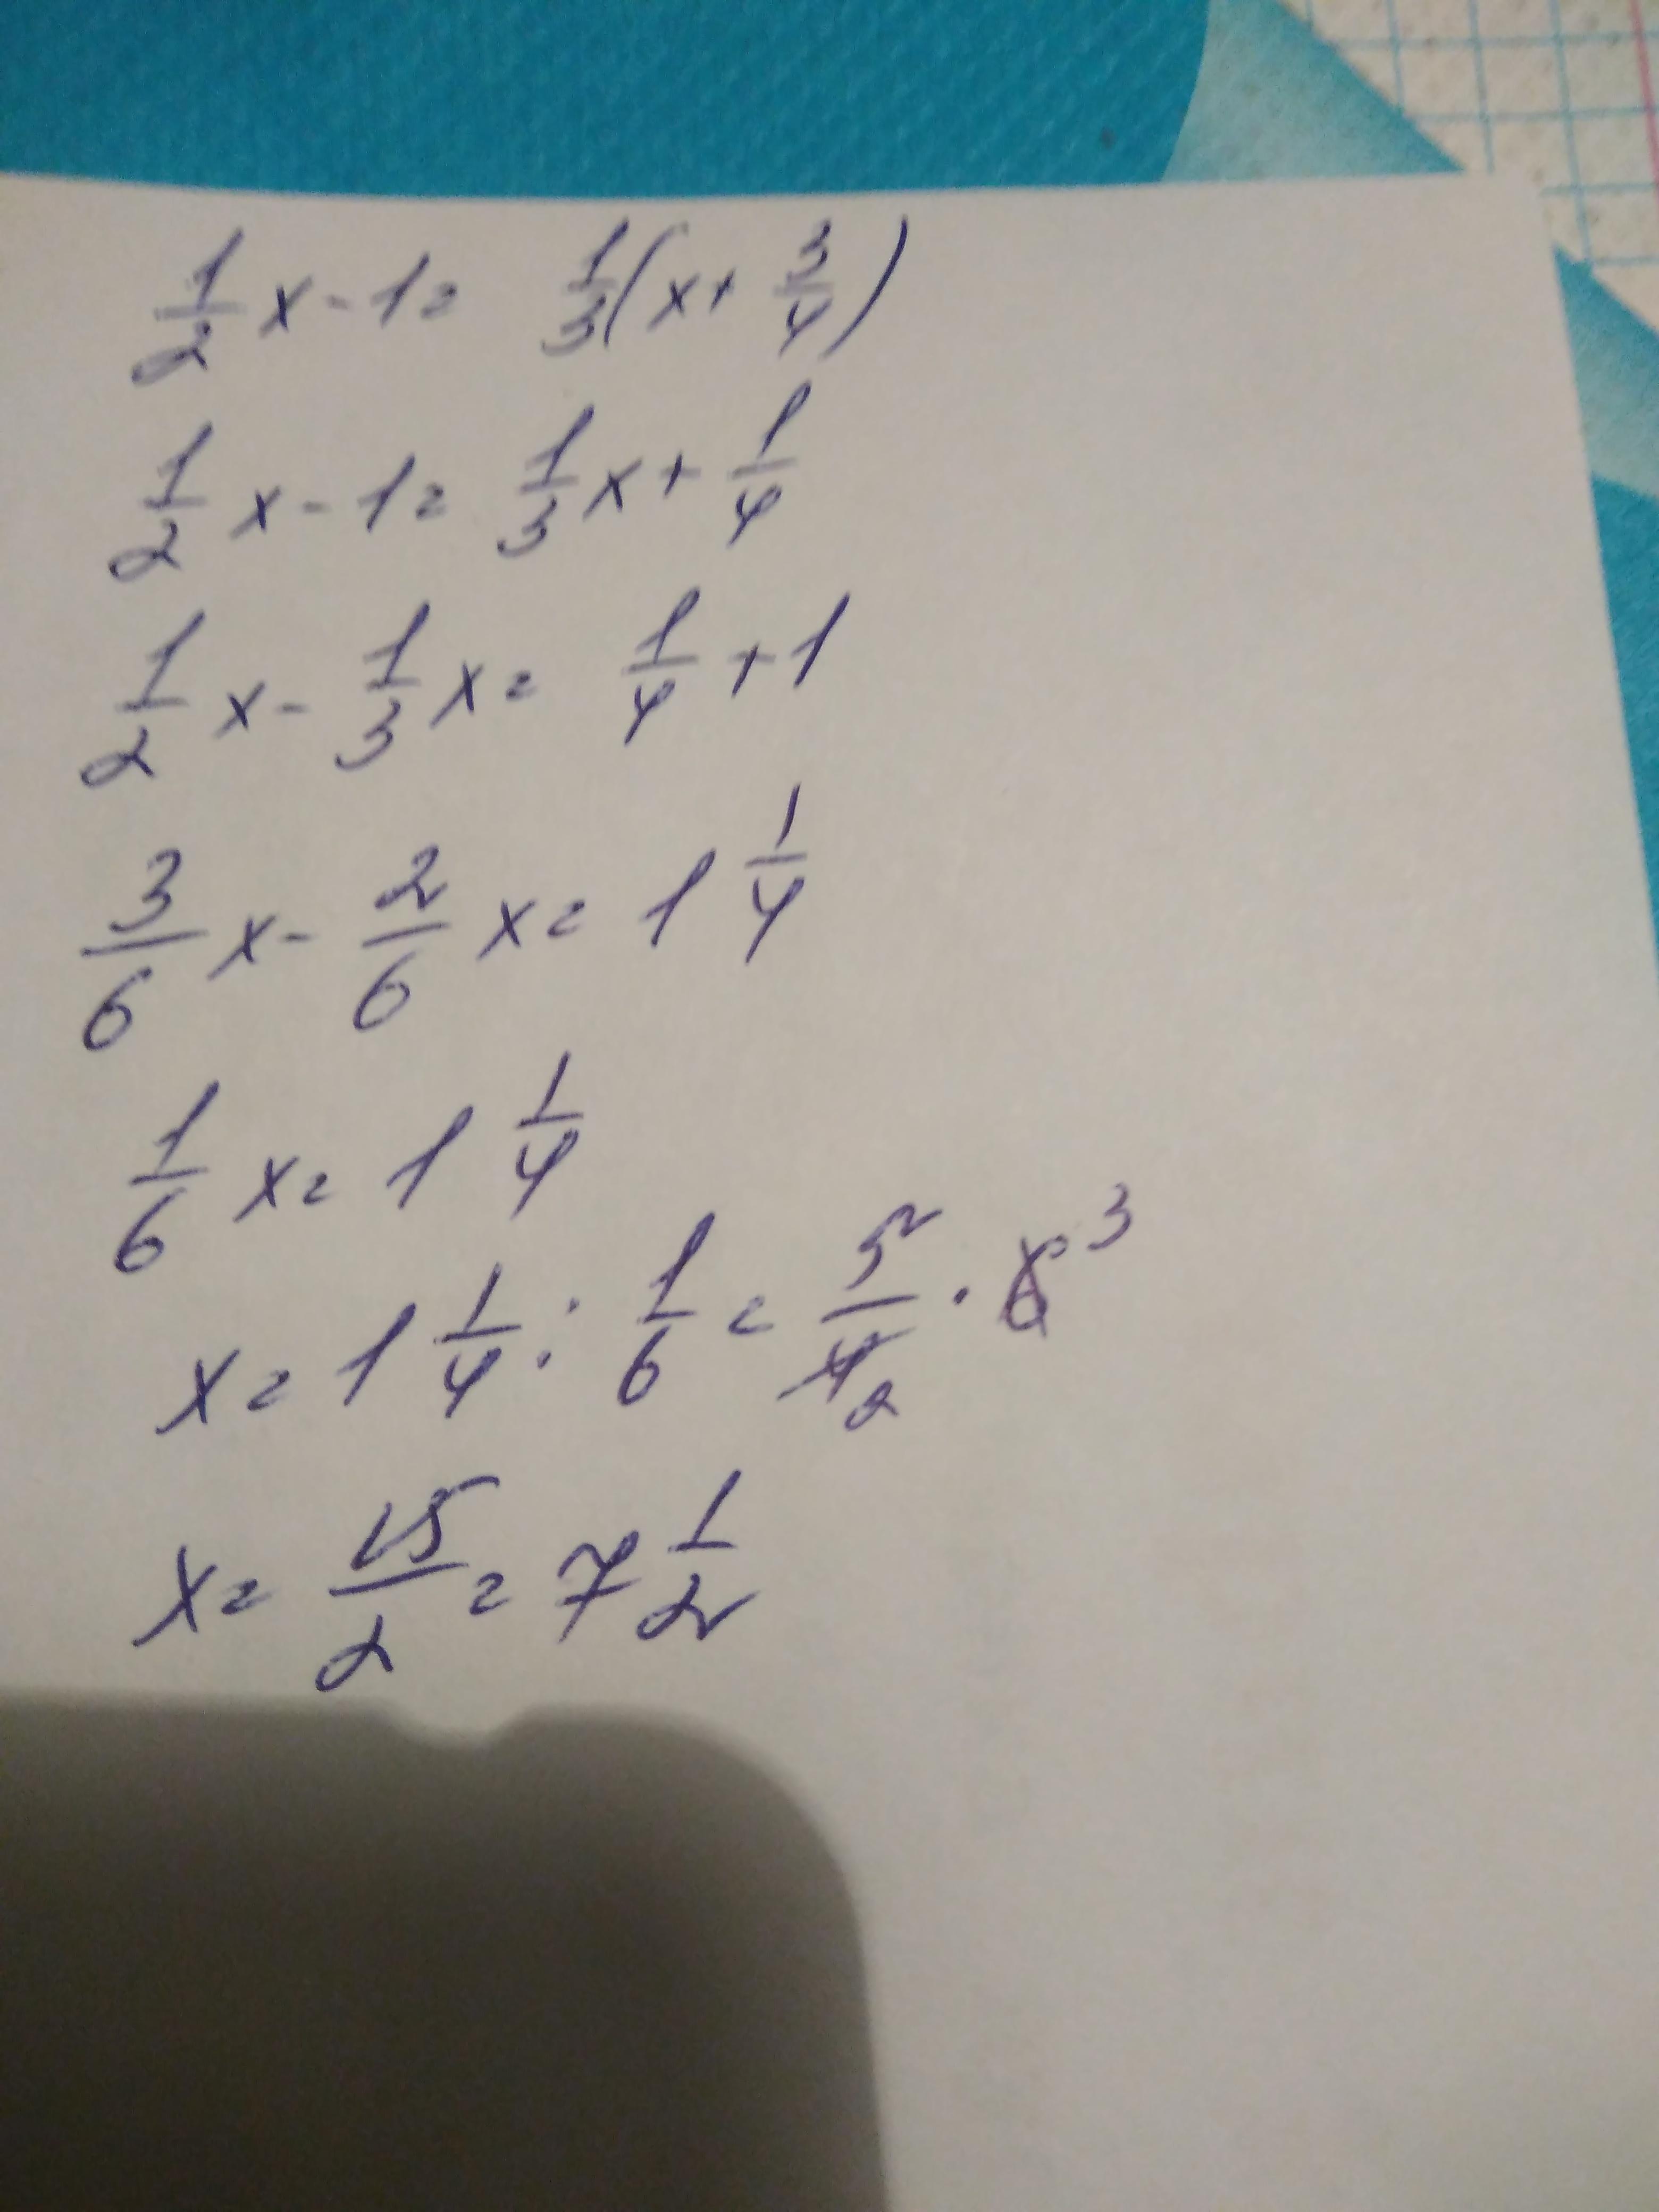 1/2 x - 1 = 1/3 (x + 3/4)
1/2 x - 1 = 1/3 x + 1/4
1/2 x - 1/3 x = 1/4 + 1
3/6 x - 2/6 x = 1 1/4
1/6 x = 1 1/4
x = 1 1/4 : 1/6 = 5/4 2 · 6 3
x = 15/2 = 7 1/2